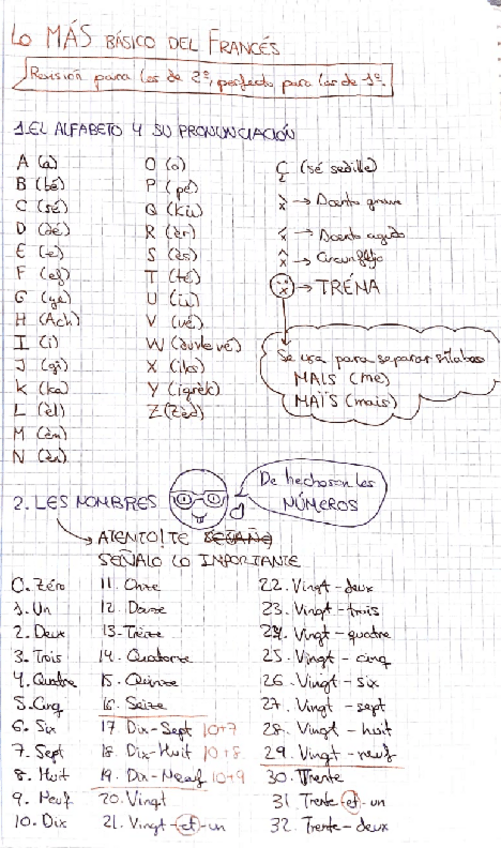 LO MÁS BÁSICO DEL FRANCÉS
Revisión para los de 2º, perfecto para los de 1º.
1. EL ALFABETO Y SU PRONUNCIACIÓN
A (a)
B (bé)
C (sé)
D (dé)
E (e)
F (ef)
G (gé)
H (Ach)
I (i)
J (gi)
K (ka)
L (èl)
M (èm)
N (èn)
O (o)
P (pé)
Q (kiu)
R (èr)
S (ès)
T (té)
U (iu)
V (vé)
W (duvle vé)
X (iks)
Y (igrèk)
Z (Zèd)
Ç (sé sedille)
x̀ → Acento grave
x́ → Acento agudo
x̂ → Circunflejo
ẍ → TRÉNA
Se usa para separar sílabas
MAIS (me)
MAÏS (mais)
2. LES NOMBRES
De hecho son los
NÚMEROS
ATENTO! TE
SEÑALO LO IMPORTANTE
0. Zéro
1. Un
2. Deux
3. Trois
4. Quatre
5. Cinq
6. Six
7. Sept
8. Huit
9. Neuf
10. Dix
11. Onze
12. Douze
13. Treize
14. Quatorze
15. Quinze
16. Seize
17. Dix-Sept 10+7
18. Dix-Huit 10+8
19. Dix-Neuf 10+9
20. Vingt
21. Vingt-et-un
22. Vingt-deux
23. Vingt-trois
24. Vingt-quatre
25. Vingt-cinq
26. Vingt-six
27. Vingt-sept
28. Vingt-huit
29. Vingt-neuf
30. Trente
31 Trente-et-un
32. Trente-deux